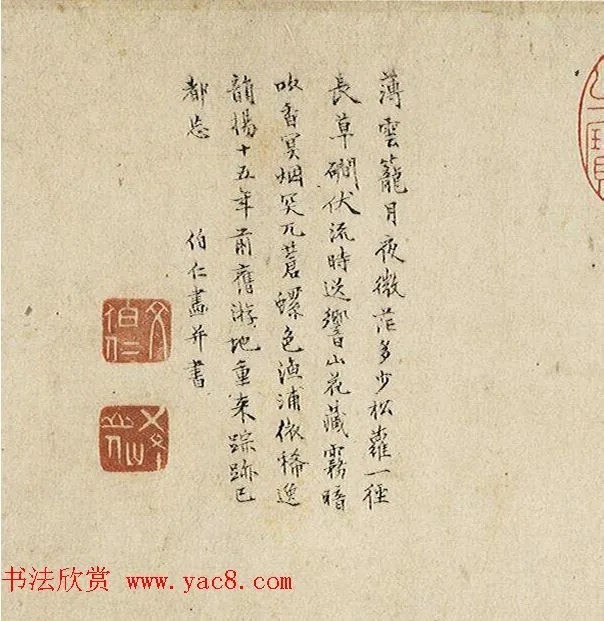 薄雲籠月夜微茫多少松蘿一徑
長草磵伏流時送響山花藏霧暗
吹香冥烟突兀蒼螺色漁浦依稀逸
韻揚十五年前舊游地重來踪跡已
都忘 伯仁畫并書
文伯仁
书法欣赏 www.yac8.com